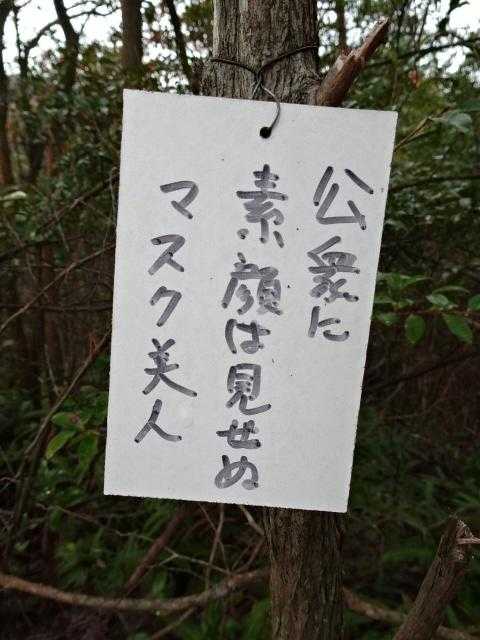 公衆に
素顔は見せぬ
マスク美人